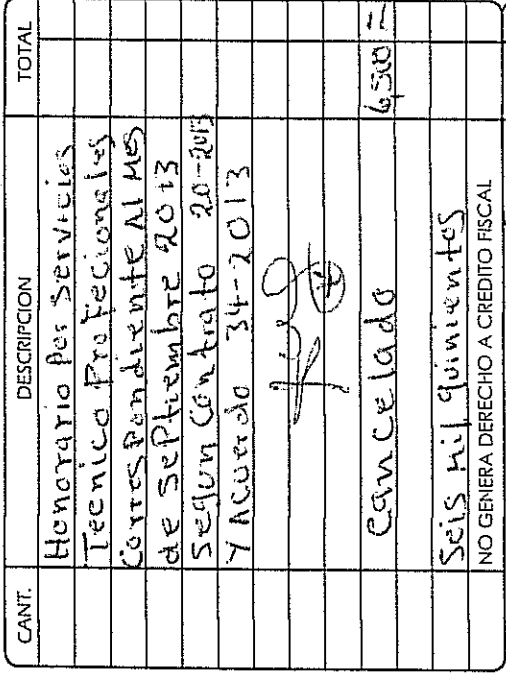 CANT. DESCRIPCION TOTAL
Honorario Por Servicios
Tecnico Profecionales
Correspondiente Al Mes
de Septiembre 2013
Segun Contrato 20-2013
Y Acuerdo 34-2013
Cancelado 6,500
Seis Mil quinientos
NO GENERA DERECHO A CREDITO FISCAL